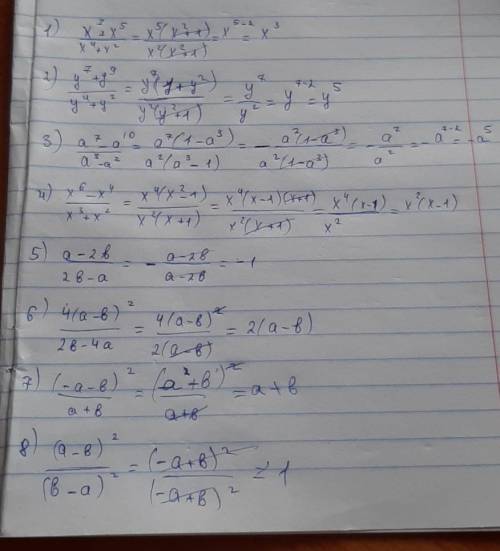 1) (x⁷+x⁵)/(x⁴+x²) = x⁵(x²+1)/x²(x²+1) = x⁵⁻² = x³
2) (y⁷+y⁹)/(y⁴+y²) = y⁷(1+y²)/y²(y²+1) = y⁷/y² = y⁷⁻² = y⁵
3) (a⁷-a¹⁰)/(a⁵-a²) = a⁷(1-a³)/a²(a³-1) = - a⁷(1-a³)/a²(1-a³) = - a⁷/a² = -a⁷⁻² = -a⁵
4) (x⁶-x⁴)/(x³+x²) = x⁴(x²-1)/x²(x+1) = x⁴(x-1)(x+1)/x²(x+1) = x⁴(x-1)/x² = x²(x-1)
5) (a-2в)/(2в-a) = - (a-2в)/(a-2в) = -1
6) 4(a-в)²/(2в-4a) = 4(a-в)²/2(a-в) = 2(a-в)
7) (-a-в)²/(a+в) = (a²+в)²/(a+в) = a+в
8) (a-в)²/(в-a)² = (-a+в)²/(-a+в)² = 1